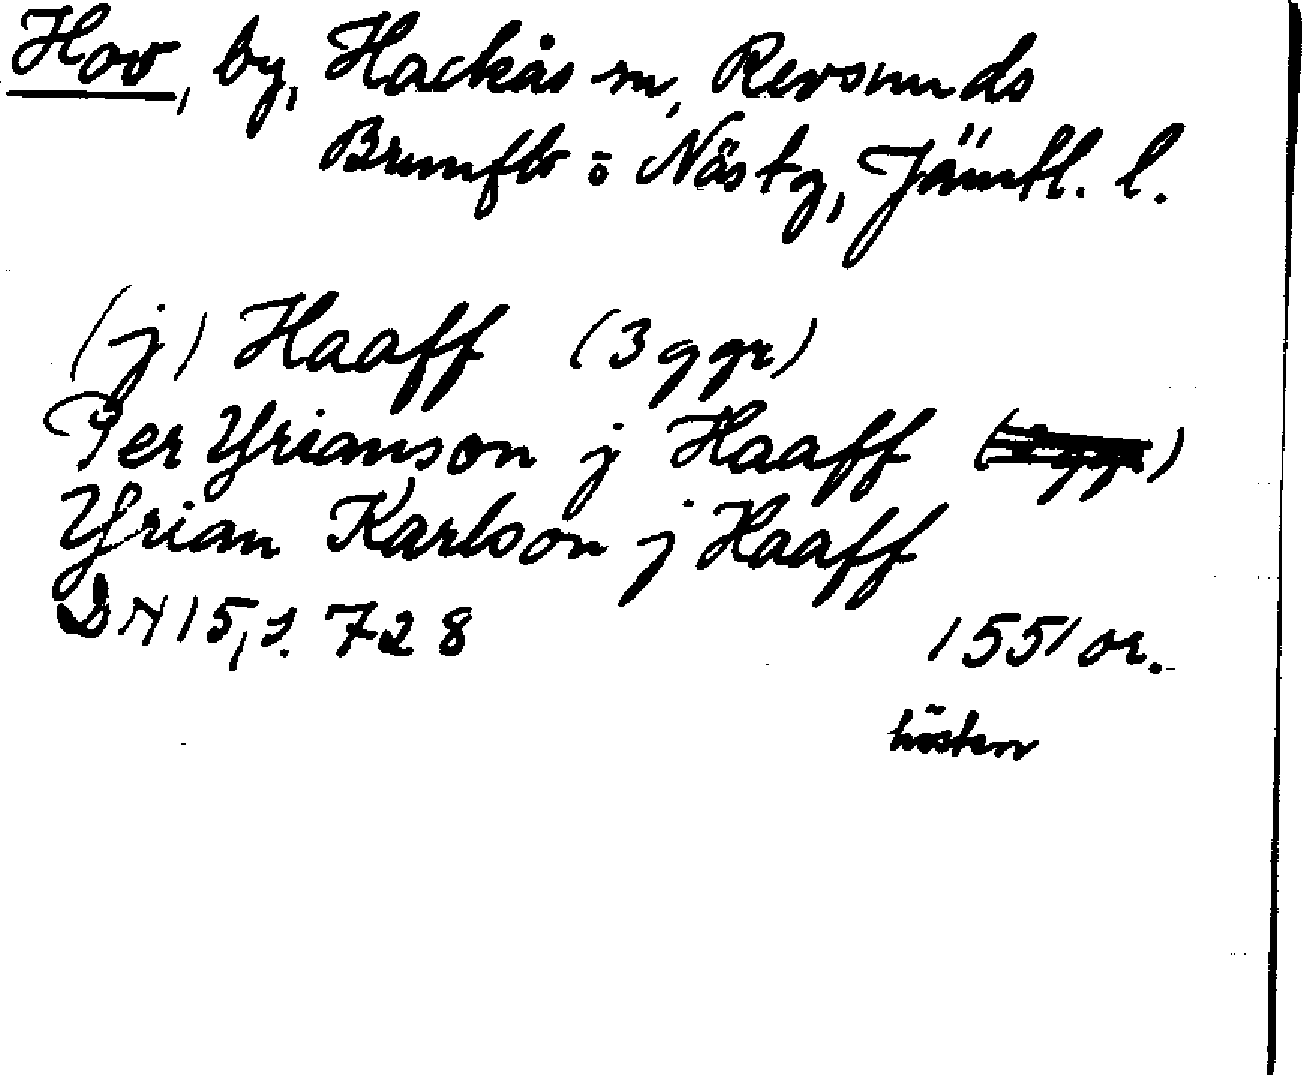 Hov, by, Hackås sn, Revsunds
Brunflo o Näs tg, Jämtl. l.
(j) Haaff (3 ggr)
Per Yrianson j Haaff
Yrian Karlson j Haaff
DN 15, s. 728 1551 or.
hösten